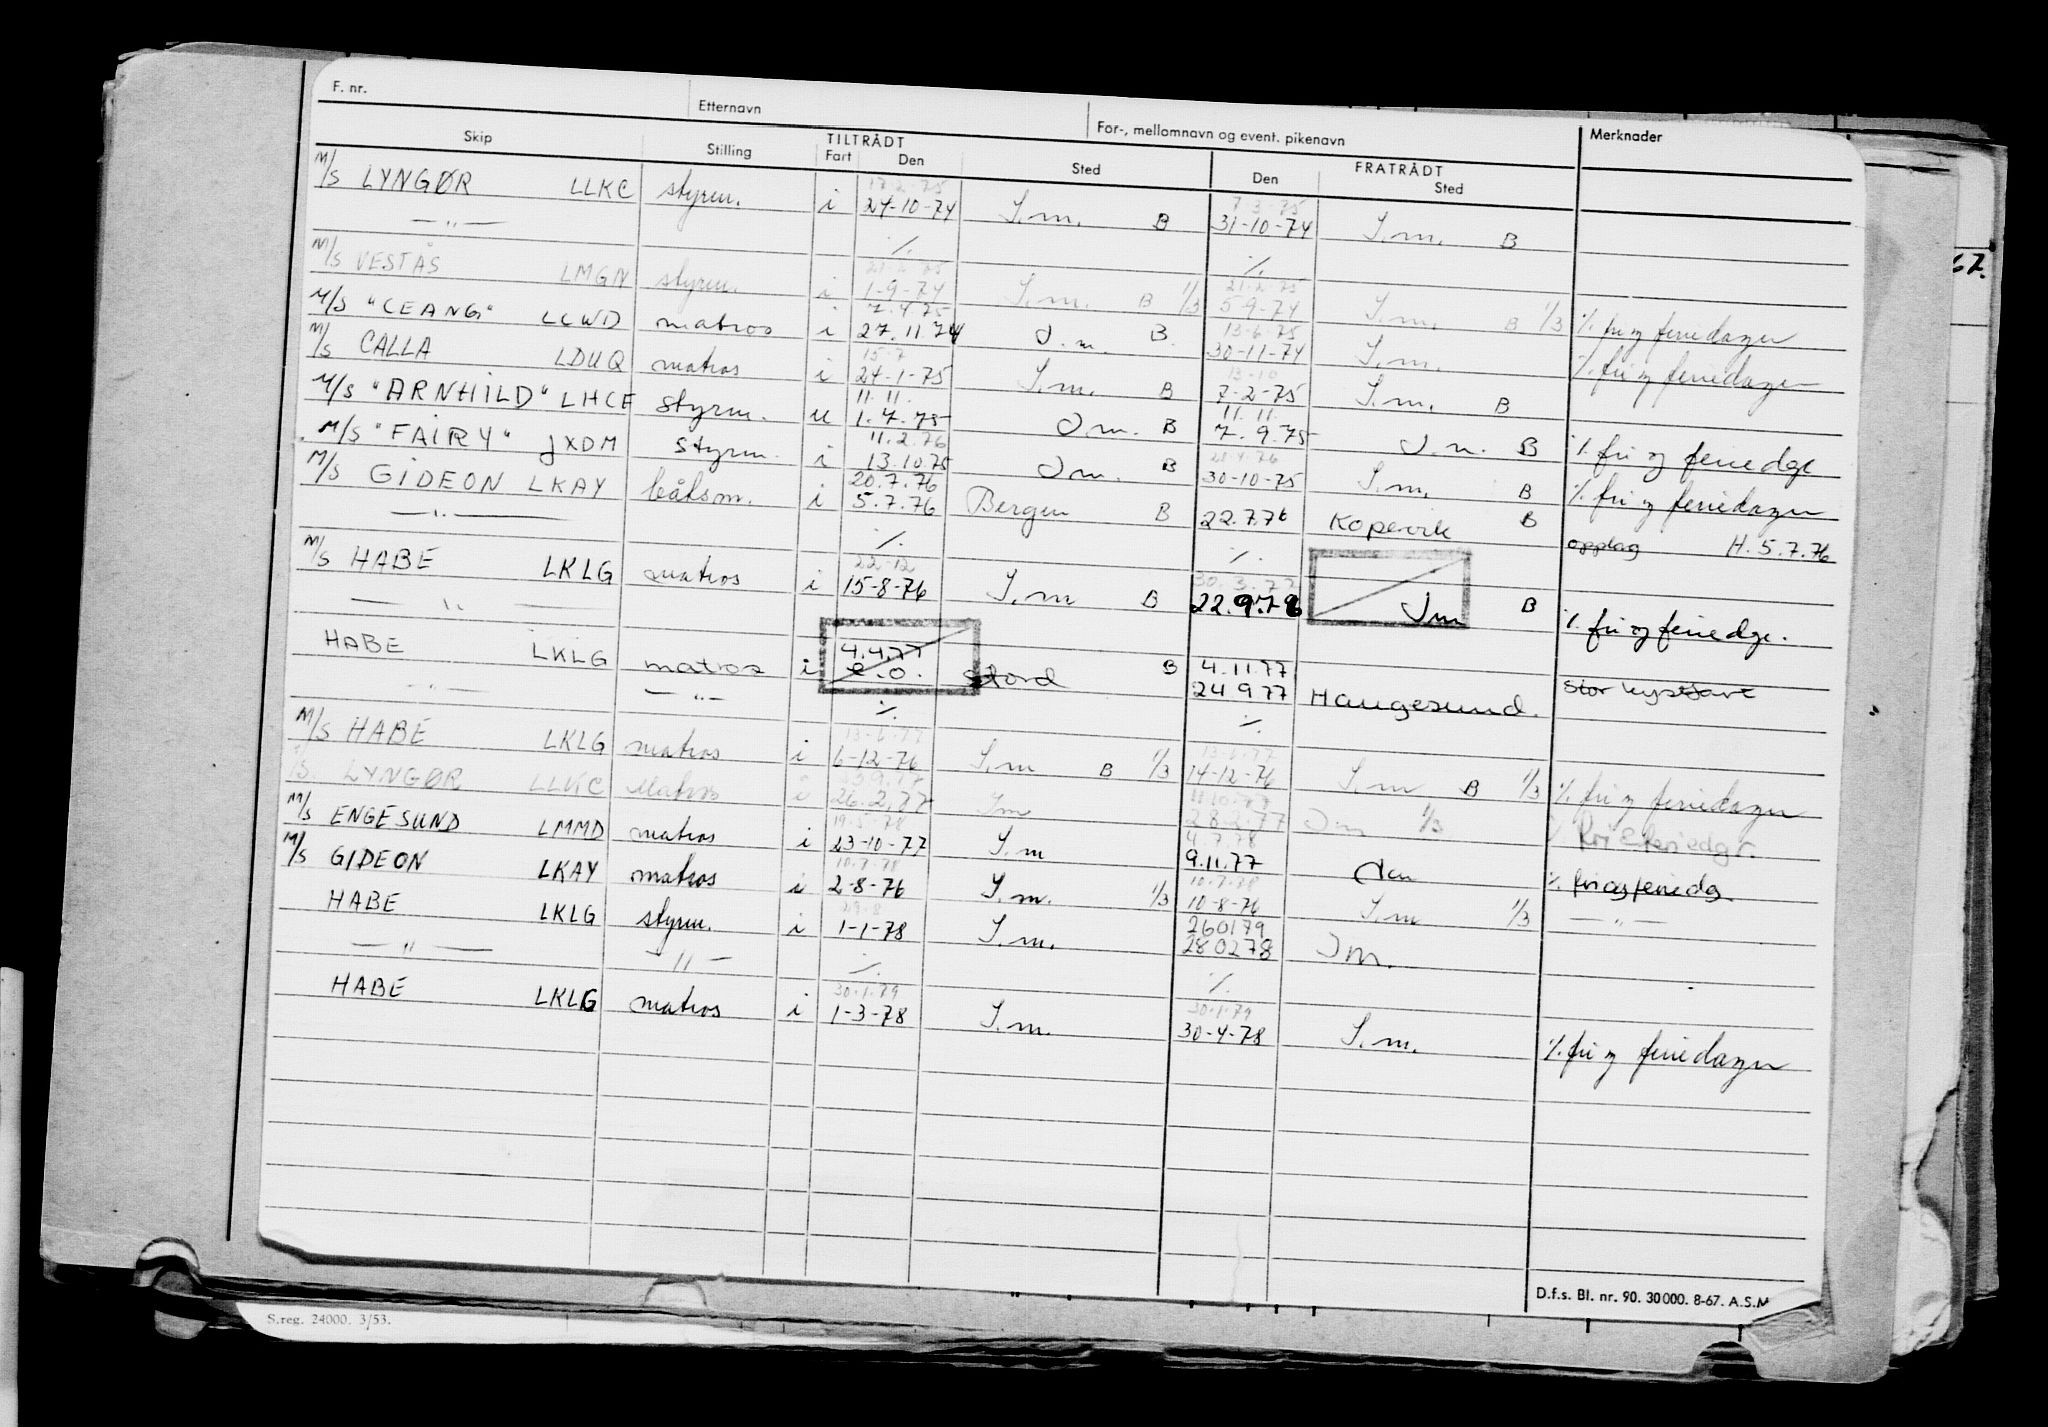 F. nr. Etternavn For-, mellomnavn og event. pikenavn Merknader
Skip Stilling TILTRÅDT Fart Den Sted FRATRÅDT Den Sted
17-2-75 7-3-75
M/S LYNGØR LLKC styrm. i 24-10-74 S.m. B 31-10-74 S.m. B
— " — % %
21-2-75
M/S VESTÅS LMGN styrm. i 1-9-74 S.m. B 1/3 5-9-74 S.m. B 1/3 % fri og feriedager
7.4.75 13-6-75
M/S "CEANG" LCWD matros i 27.11 74 S.m. B. 30-11-74 S.m. % fri og feriedager
15-7 13-10
M/S CALLA LDUQ matros i 24-1-75 S.m. B 7-2-75 S.m. B
11.11. 11.11.
M/S "ARNHILD" LHCE styrm. u 1.7.75 S.m. B 7.9.75 S.m. B % fri og feriedge
11.2.76
M/S "FAIRY" JXDM styrm. i 13.10.75 S.m. B 30-10-75 S.m. B % fri og feriedager
20.7.76
M/S GIDEON LKAY båtsm. i 5.7.76 Bergen B 22.7.76 Kopervik B opplag H. 5.7.76
— " — % %
22-12 30.3.77
M/S HABE LKLG matros i 15-8-76 S.m B 22.9.76 S.m B % fri og feriedge.
— " —
4.4.77 4.11.77
HABE LKLG matros i e.o. Stord B 24 9 77 Haugesund. Stor kystfart
— " — — " — % %
13-6-77 13-6-77
M/S HABE LKLG matros i 6-12-76 S.m B 1/3 14-12-76 S.m B 1/3 % fri og feriedager
M/S LYNGØR LLKC Matros i 26.2.77 S.m 28.2.77 S.m 1/3 % fri & feriedgr.
19.5-78 4.7.78
M/S ENGESUND LMMD matros i 23-10-77 S.m 9.11.77 S.m % fri og feriedg.
10-7-78 10-7-78
M/S GIDEON LKAY matros i 2-8-76 S.m. 1/3 10-8-76 S.m 1/3 — " —
29-8 260179
HABE LKLG styrm. i 1-1-78 S.m. 280278 S.m.
— " — — " — % %
30-1.79 30-1.79
HABE LKLG matros i 1-3-78 S.m. 30-4-78 S.m. % fri og feriedager
D.f.s. Bl. nr. 90. 30 000. 8-67. A.S.M
S.reg. 24000. 3/53.
67.